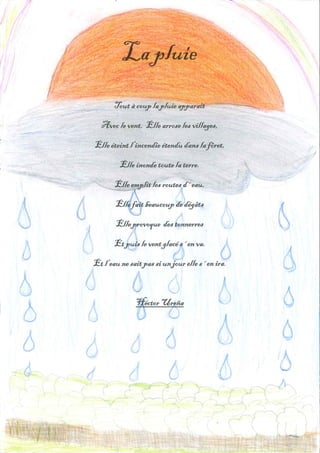 La pluie
Tout à coup la pluie apparaît
Avec le vent. Elle arrose les villages,
Elle éteint l'incendie étendu dans la fôret,
Elle inonde toute la terre.
Elle emplit les routes d´ eau,
Elle fait beaucoup de dégâts
Elle provoque des tonnerres
Et puis le vent glacé s´ en va.
Et l'eau ne sait pas si un jour elle s´ en ira.
Héctor Ureña